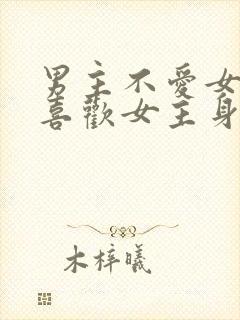 男主不愛女
喜歡女主身
木梓曦